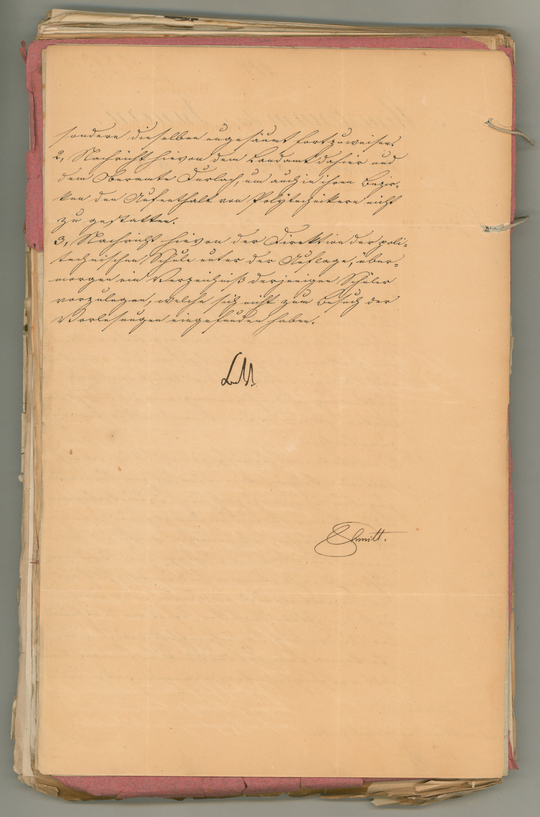 sondere dieselben ungesäumt fortzuweisen.
2, Nachricht hievon dem Landamt dahier und
dem Oberamte Durlach, um auch in ihren Bezir-
ken den Aufenthalt von Polytechnikern nicht
zu gestatten.
3, Nachricht hievon der Direktion der poli-
technischen Schule unter der Auflage, über-
morgen ein Verzeichniß derjenigen Schüler
vorzulegen, welche sich nicht zum Besuch der
Vorlesungen eingefunden haben.
Schmitt.